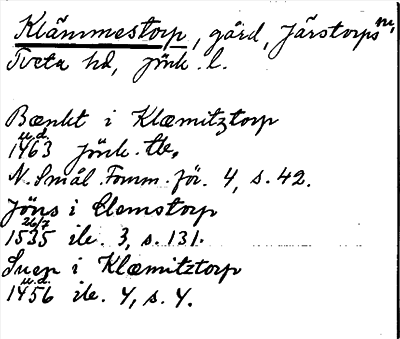 Klämmestorp, gård, Järstorps sn,
Tveta hd, Jönk. l.
Bænkt i Klæmitztorp
u.d.
1463 Jönk. tb.
N. Smål. Fornm. för. 4, s. 42.
Jöns i Clemstorp
26/7
1535 ib. 3, s. 131.
Suen i Klæmitztorp
u.d.
1456 ib. 4, s. 4.